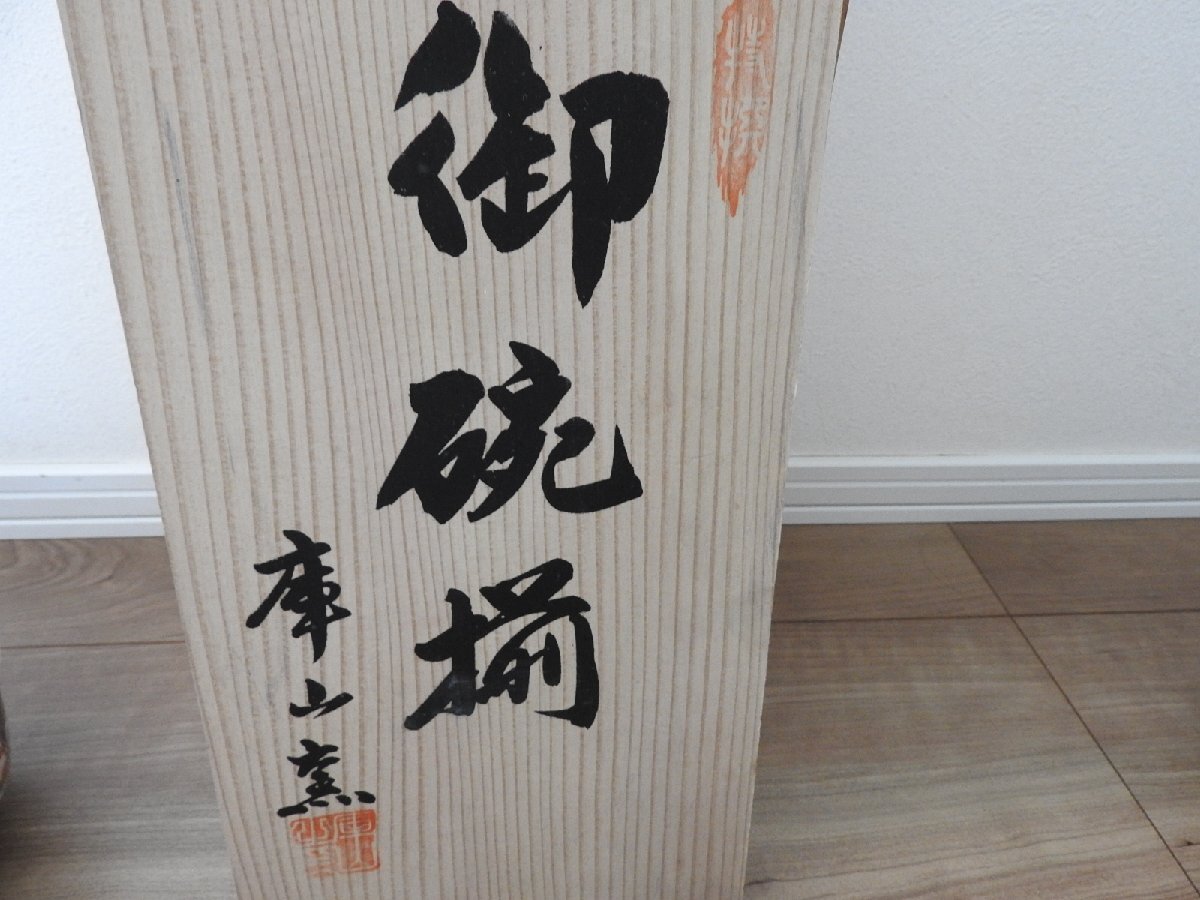 御碗揃
庫山窯